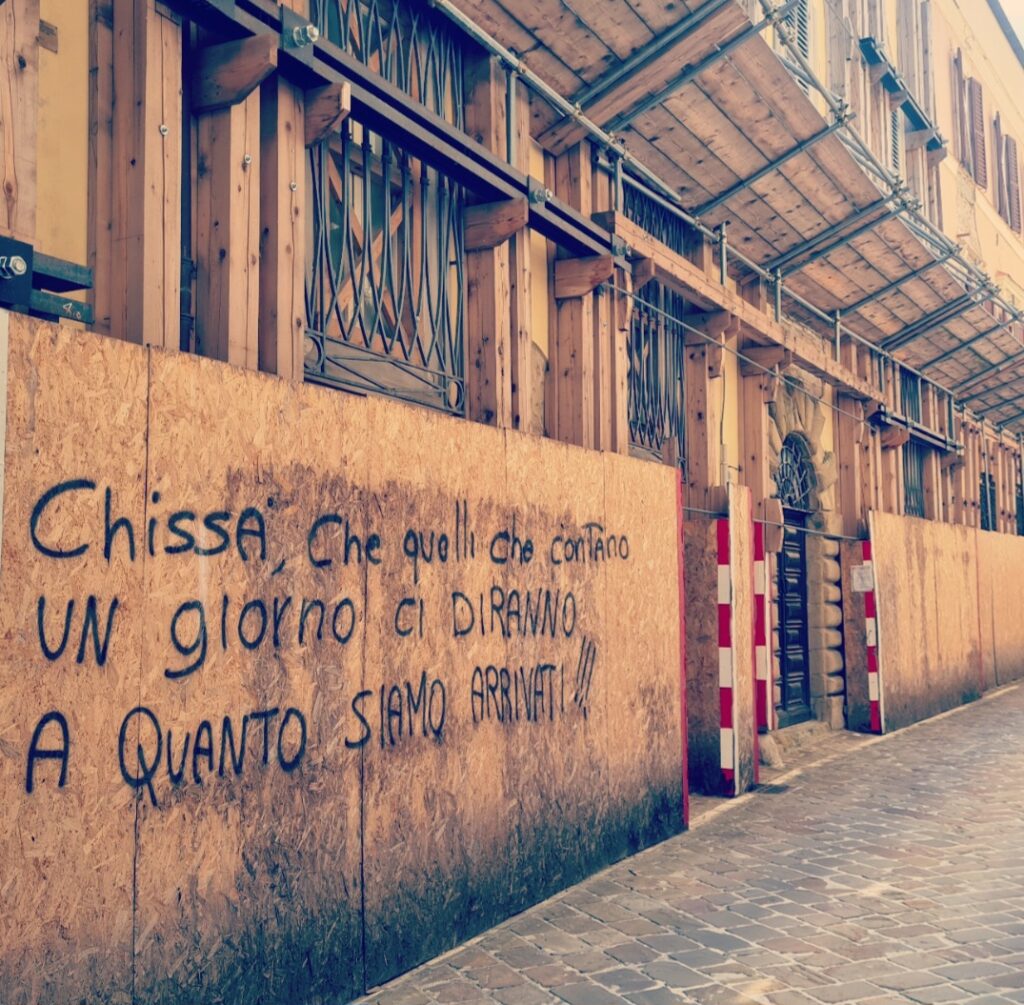 Chissà, che quelli che conTano
UN giorno ci DIRANNO
A QUANTO SIAMO ARRIVATI!!!